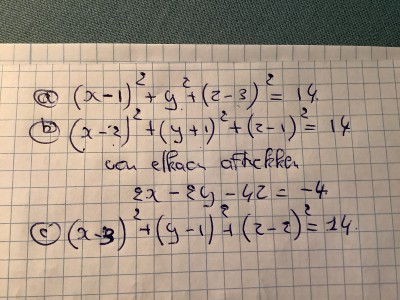 (a) (x-1)² + y² + (z-3)² = 14.
(b) (x-2)² + (y+1)² + (z-1)² = 14
van elkaar aftrekken
2x - 2y - 4z = -4
(c) (x-3)² + (y-1)² + (z-2)² = 14.